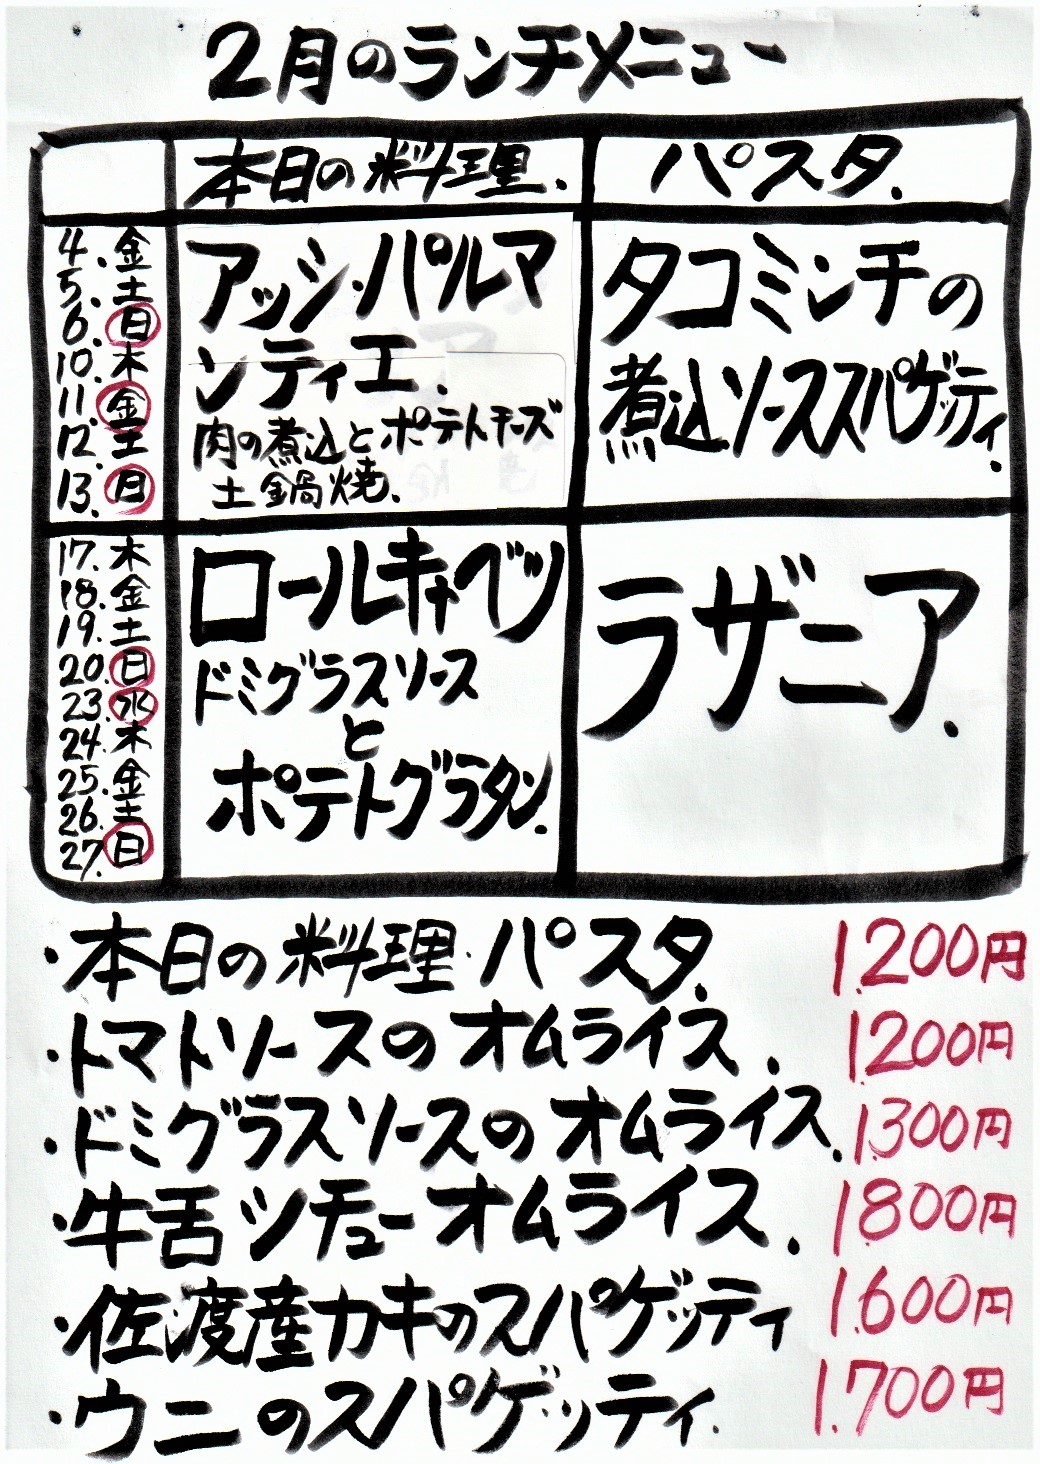 2月のランチメニュー
本日の料理. パスタ.
4. 金
5. 土
6. 日
10. 木
11. 金
12. 土
13. 日
アッシ・パルマ
ンティエ.
肉の煮込とポテトチーズ
土鍋焼.
タコミンチの
煮込ソーススパゲッティ.
17. 木
18. 金
19. 土
20. 日
23. 水
24. 木
25. 金
26. 土
27. 日
ロールキャベツ
ドミグラスソース
と
ポテトグラタン.
ラザニア.
・本日の料理・パスタ. 1.200円
・トマトソースのオムライス. 1.200円
・ドミグラスソースのオムライス. 1.300円
・牛舌シチューオムライス. 1.800円
・佐渡産カキのスパゲッティ 1.600円
・ウニのスパゲッティ. 1.700円